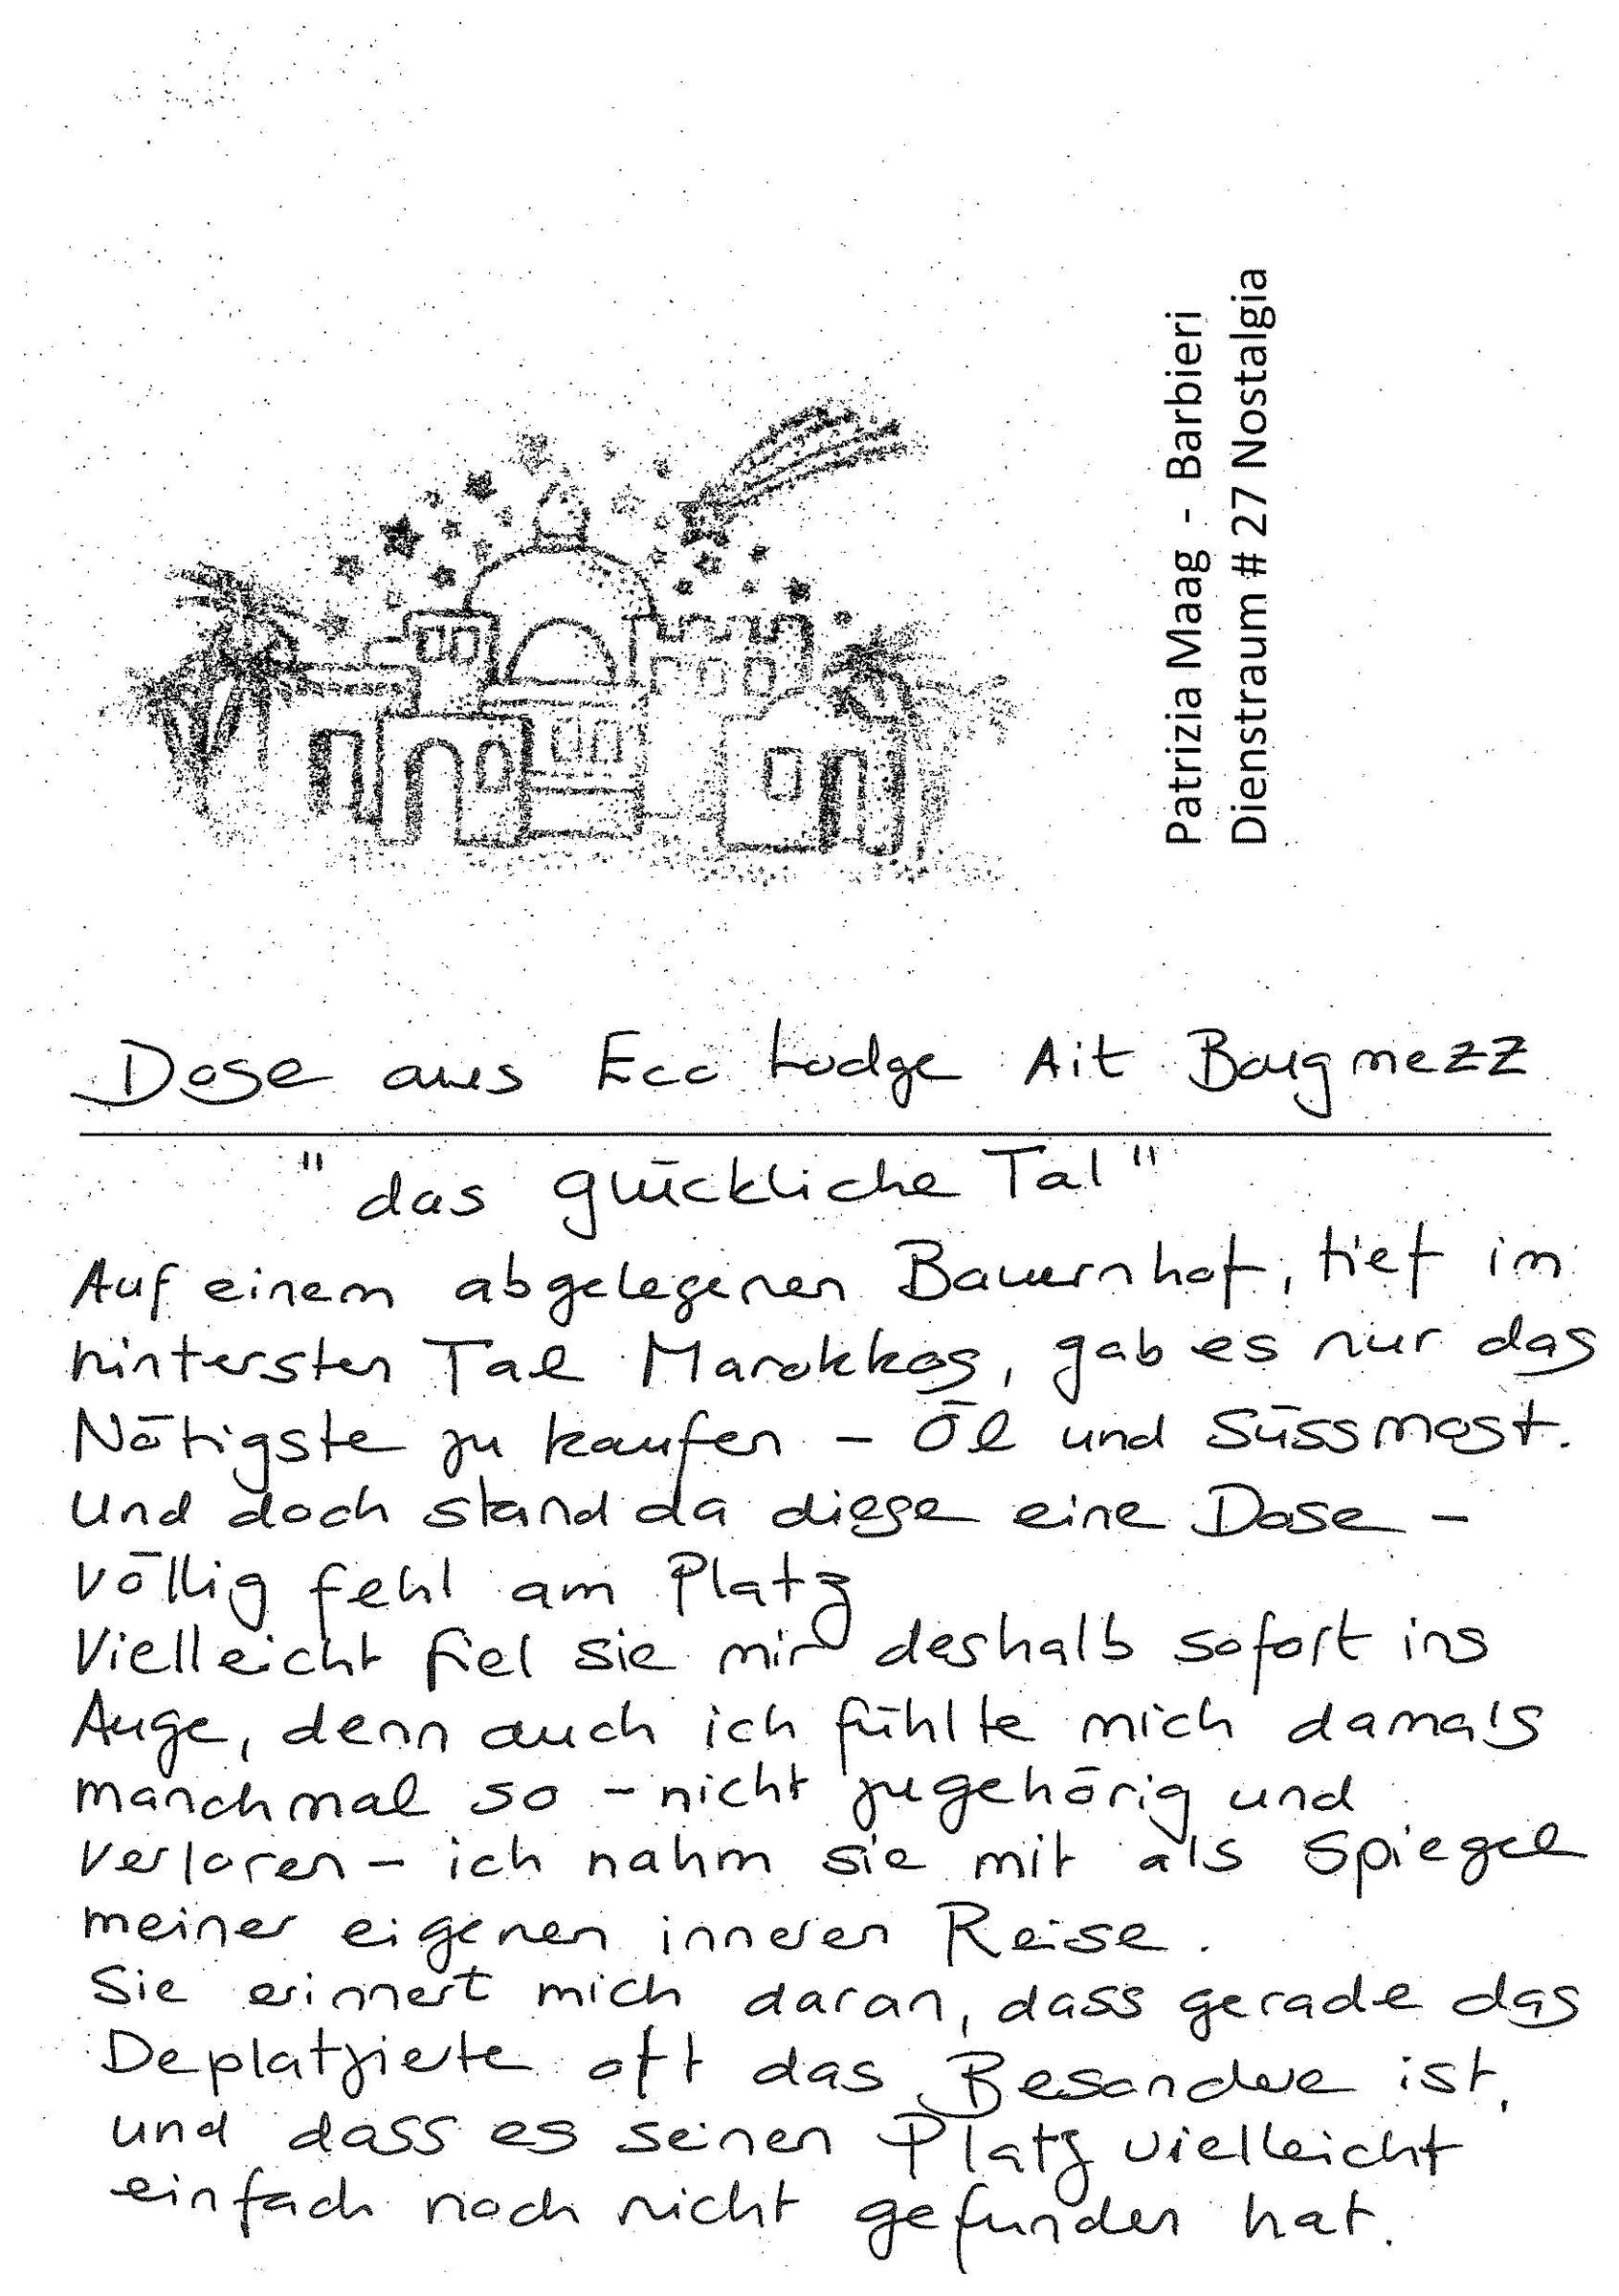 Patrizia Maag - Barbieri
Dienstraum # 27 Nostalgia
Dose aus Eco Lodge Ait Bougmezz
"das glückliche Tal"
Auf einem abgelegenen Bauernhof, tief im
hintersten Tal Marokkos, gab es nur das
Nötigste zu kaufen - Öl und Süssmost.
Und doch stand da diese eine Dose -
völlig fehl am Platz
Vielleicht fiel sie mir deshalb sofort ins
Auge, denn auch ich fühlte mich damals
manchmal so - nicht zugehörig und
verloren - ich nahm sie mit als Spiegel
meiner eigenen inneren Reise.
Sie erinnert mich daran, dass gerade das
Deplatzierte oft das Besondere ist,
und dass es seinen Platz vielleicht
einfach noch nicht gefunden hat.